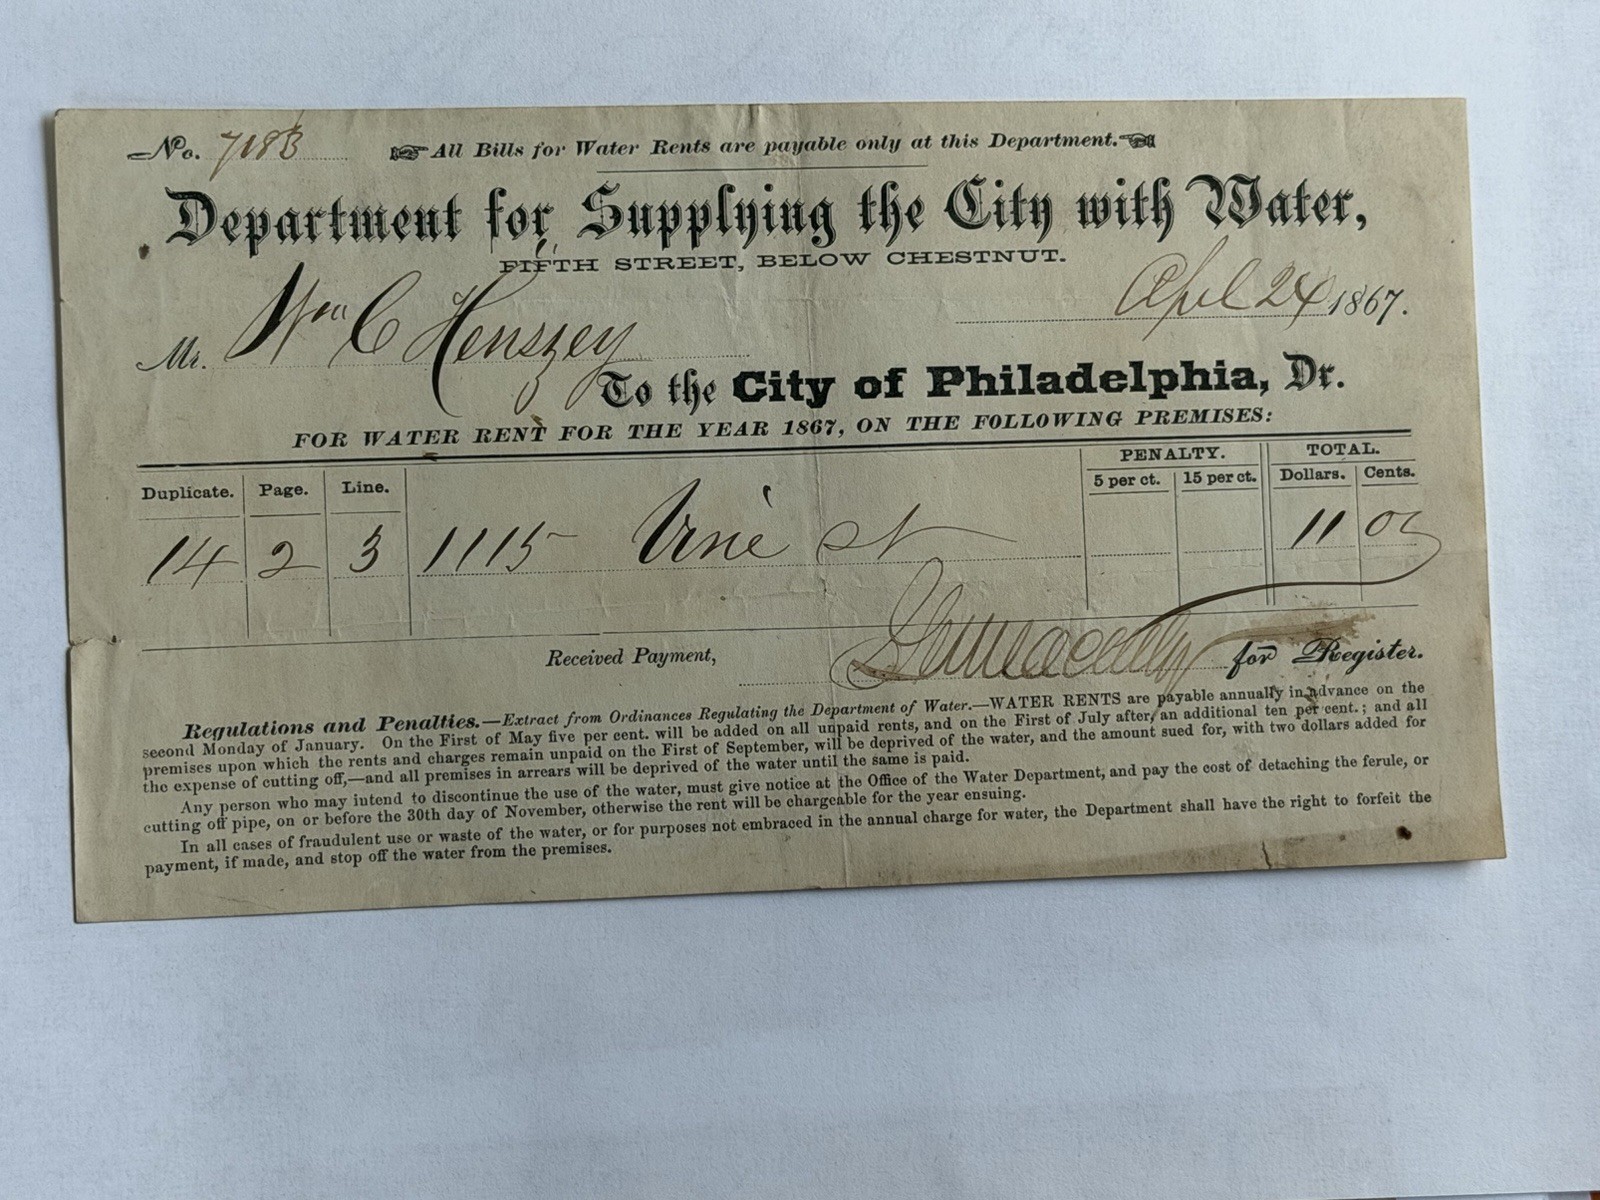 No. 7183
All Bills for Water Rents are payable only at this Department.
Department for Supplying the City with Water,
FIFTH STREET, BELOW CHESTNUT.
April 24 1867.
Mr. Wm C Henszey
To the City of Philadelphia, Dr.
FOR WATER RENT FOR THE YEAR 1867, ON THE FOLLOWING PREMISES:
Duplicate. Page. Line. PENALTY. 5 per ct. 15 per ct. TOTAL. Dollars. Cents.
14 2 3 1115 Vine st 11 00
Received Payment, for Register.
Regulations and Penalties.—Extract from Ordinances Regulating the Department of Water.—WATER RENTS are payable annually in advance on the
second Monday of January. On the First of May five per cent. will be added on all unpaid rents, and on the First of July after, an additional ten per cent.; and all
premises upon which the rents and charges remain unpaid on the First of September, will be deprived of the water, and the amount sued for, with two dollars added for
the expense of cutting off,—and all premises in arrears will be deprived of the water until the same is paid.
Any person who may intend to discontinue the use of the water, must give notice at the Office of the Water Department, and pay the cost of detaching the ferule, or
cutting off pipe, on or before the 30th day of November, otherwise the rent will be chargeable for the year ensuing.
In all cases of fraudulent use or waste of the water, or for purposes not embraced in the annual charge for water, the Department shall have the right to forfeit the
payment, if made, and stop off the water from the premises.